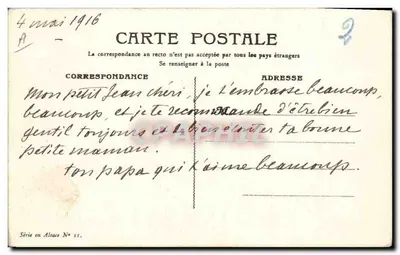 4 mai 1916
A
2
CARTE POSTALE
La correspondance au recto n'est pas acceptée par tous les pays étrangers
Se renseigner à la poste
CORRESPONDANCE
ADRESSE
Mon petit Jean chéri, je t'embrasse beaucoup,
beaucoup, et je te recommande d'être bien
gentil toujours et de bien écouter ta bonne
petite maman.
ton papa qui t'aime beaucoup.
Série en Alsace N° 11.